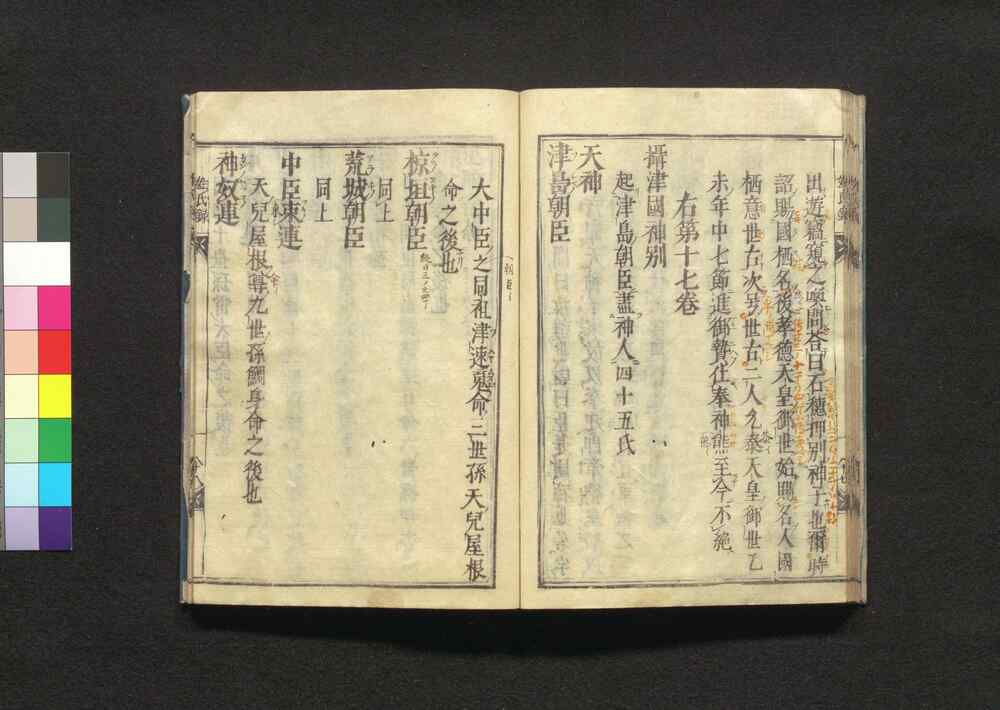 出遊竊窺之喚問答曰石穗押別神子也爾時
詔賜國栖名後孝德天皇御世始賜名人國
栖意世古次号世古二人允恭天皇御世乙
未年中七節進御贄仕奉神態至今不絶
右第十七卷
攝津國神別
起津島朝臣盡神人四十五氏
天神
津島朝臣
大中臣之同祖津速魂命三世孫天兒屋根
命之後也
椋垣朝臣
同上
荒城朝臣
同上
中臣束連
天兒屋根尊九世孫鯛身命之後也
神奴連
姓氏錄